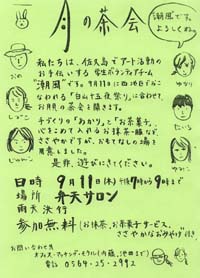 月の茶会
「潮風」です。
よろしくね。
私たちは、佐久島でアート活動の
お手伝いする学生ボランティアチーム
「潮風」です。9月11日に西地区でおこ
なわれる「白山十五夜祭り」に合わせて
お月見の茶会を開きます。
手づくりの「あかり」と「お茶菓子」、
心をこめて入れるお抹茶・緑茶など、
ささやかですが、おもてなしの場を
用意しました。
是非、遊びにきてください。
日時 9月11日(木)午後7時から9時まで
場所 弁天サロン
雨天決行
参加無料(お抹茶、お茶菓子サービス。
ささやかなおみやげ付き
お問い合わせ先
オフィス・マッチング・モウル(内藤、池田まで)
電話 0564-25-2992